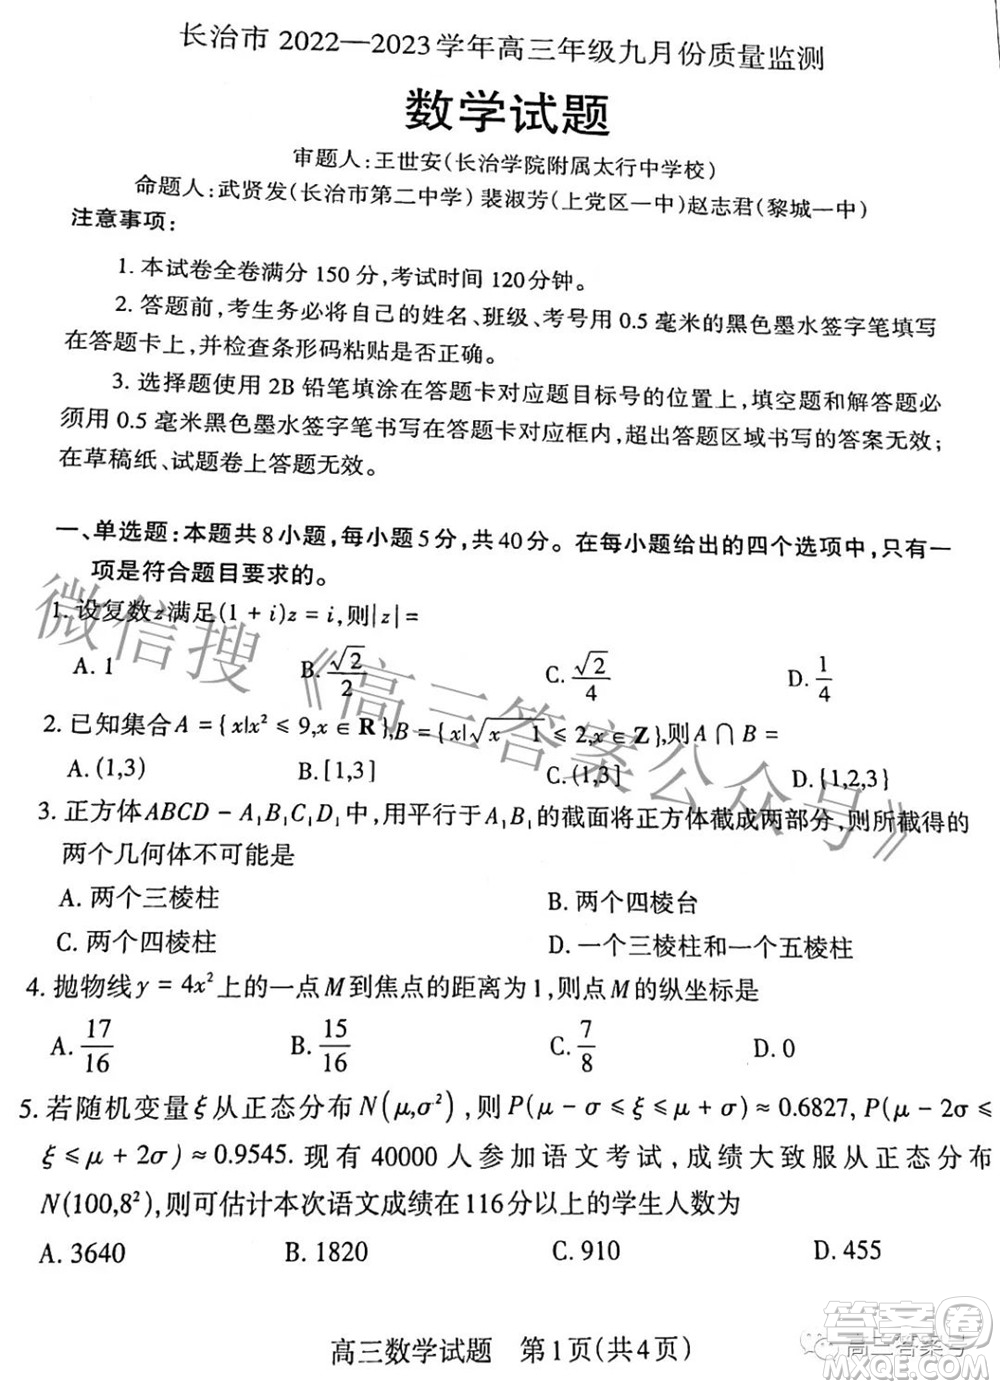 长治市 2022—2023学年高三年级九月份质量监测
数学试题
审题人:王世安(长治学院附属太行中学校)
命题人:武贤发(长治市第二中学) 裴淑芳(上党区一中)赵志君(黎城一中)
注意事项:
1. 本试卷全卷满分 150 分,考试时间 120分钟。
2. 答题前,考生务必将自己的姓名、班级、考号用 0.5 毫米的黑色墨水签字笔填写
在答题卡上,并检查条形码粘贴是否正确。
3. 选择题使用 2B 铅笔填涂在答题卡对应题目标号的位置上,填空题和解答题必
须用 0.5 毫米黑色墨水签字笔书写在答题卡对应框内,超出答题区域书写的答案无效;
在草稿纸、试题卷上答题无效。
一、单选题:本题共8小题,每小题5分,共40分。在每小题给出的四个选项中,只有一
项是符合题目要求的。
1. 设复数z满足(1 + i)z = i,则|z| =
A. 1 B. √2/2 C. √2/4 D. 1/4
2. 已知集合A = {x|x² ≤ 9,x∈R},B = {x|√x 1 ≤ 2,x∈Z},则A ∩ B =
A. (1,3) B. [1,3] C. (1,3] D. {1,2,3}
3. 正方体ABCD − A₁B₁C₁D₁中,用平行于A₁B₁的截面将正方体截成两部分,则所截得的
两个几何体不可能是
A. 两个三棱柱 B. 两个四棱台
C. 两个四棱柱 D. 一个三棱柱和一个五棱柱
4. 抛物线y = 4x²上的一点M到焦点的距离为1,则点M的纵坐标是
A. 17/16 B. 15/16 C. 7/8 D. 0
5. 若随机变量ξ从正态分布N(μ,σ²),则P(μ − σ ≤ ξ ≤ μ + σ) ≈ 0.6827, P(μ − 2σ ≤
ξ ≤ μ + 2σ) ≈ 0.9545. 现有 40000 人参加语文考试,成绩大致服从正态分布
N(100,8²),则可估计本次语文成绩在116分以上的学生人数为
A. 3640 B. 1820 C. 910 D. 455
高三数学试题 第1页(共4页)
微信搜《高三答案公众号》
高三答案号
答案圈
MXQE.COM